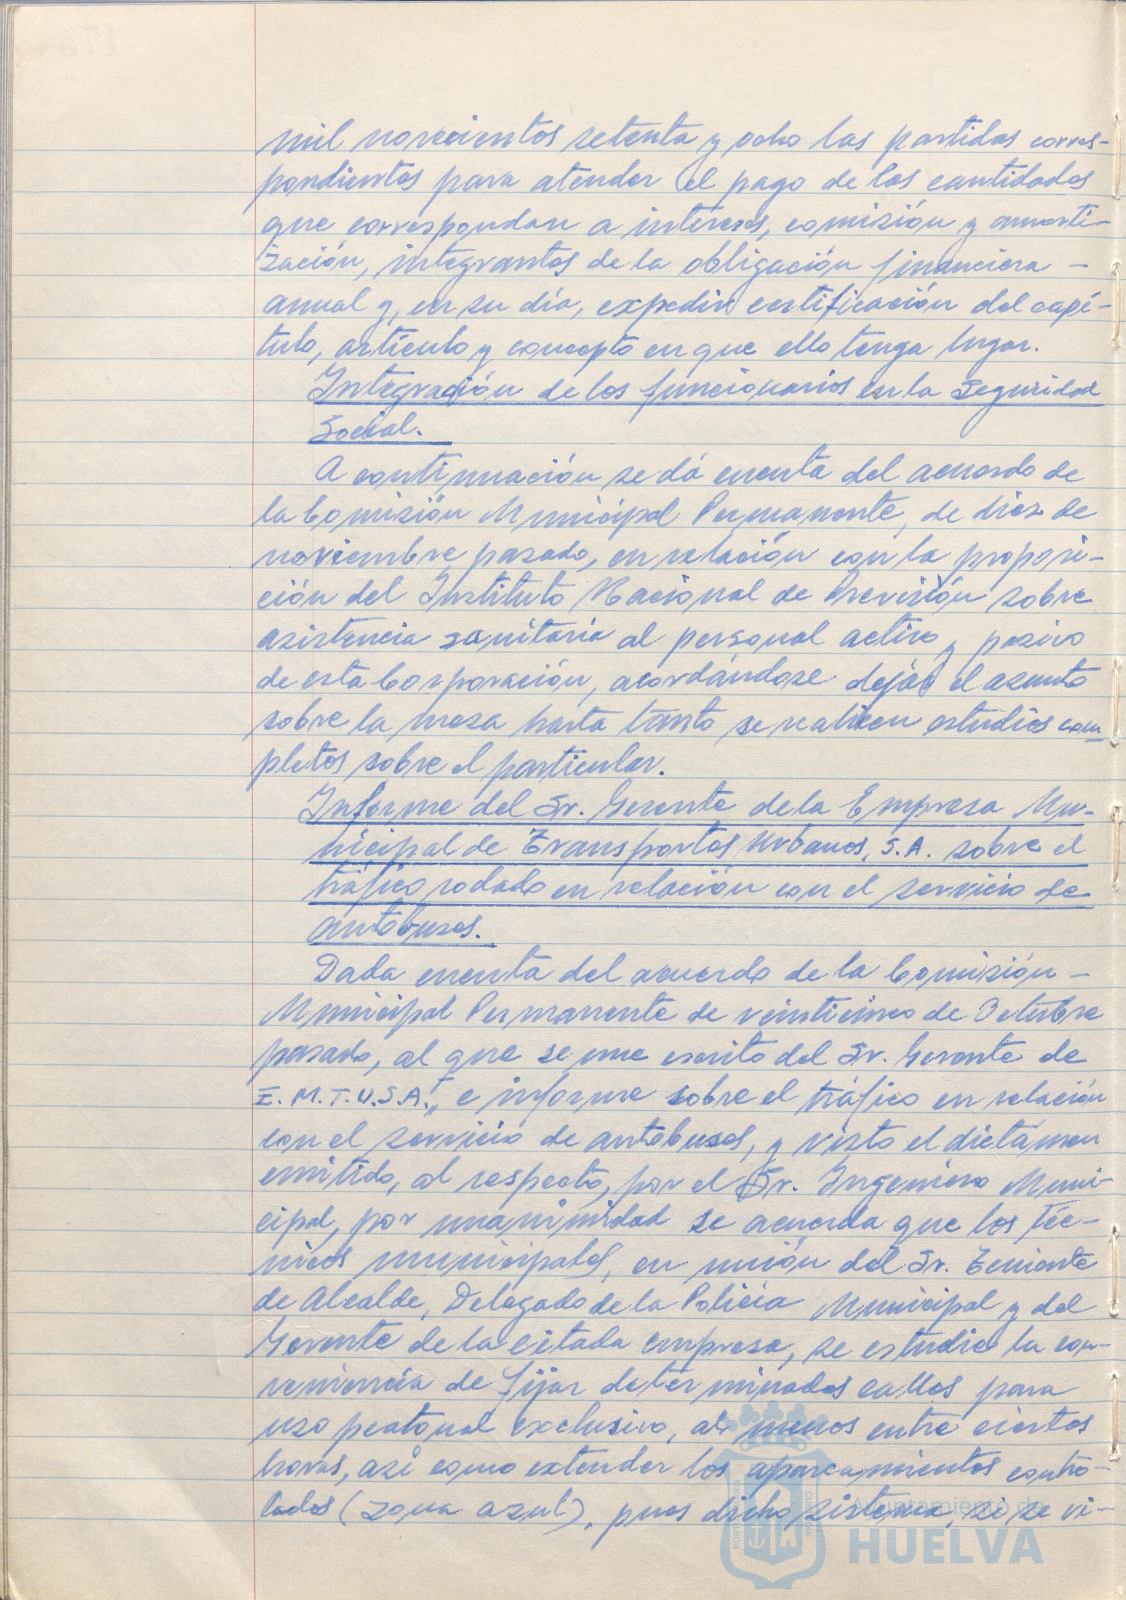 mil novecientos setenta y ocho las partidas corres-
pondientes para atender el pago de las cantidades
que correspondan a intereses, comisión y amorti-
zación, integrantes de la obligación financiera -
anual y, en su día, expedir certificación del capí-
tulo, artículo y concepto en que ello tenga lugar.
Integración de los funcionarios en la Seguridad
Social.
A continuación se dá cuenta del acuerdo de
la Comisión Municipal Permanente, de diez de
noviembre pasado, en relación con la proposi-
ción del Instituto Nacional de Previsión sobre
asistencia sanitaria al personal activo y pasivo
de esta Corporación, acordándose dejar el asunto
sobre la mesa hasta tanto se realicen estudios com
pletos sobre el particular.
Informe del Sr. Gerente de la Empresa Mu-
nicipal de Transportes Urbanos, S.A. sobre el
tráfico rodado en relación con el servicio de
autobuses.
Dada cuenta del acuerdo de la Comisión -
Municipal Permanente de veinticinco de Octubre
pasado, al que se une escrito del Sr. Gerente de
E.M.T.U.S.A., e informe sobre el tráfico en relación
con el servicio de autobuses, y visto el dictámen
emitido, al respecto, por el Sr. Ingeniero Muni-
cipal, por unanimidad se acuerda que los Téc-
nicos municipales, en unión del Sr. Teniente
de Alcalde, Delegado de la Policía Municipal y del
Gerente de la citada empresa, se estudie la con-
veniencia de fijar determinadas calles para
uso peatonal exclusivo, al menos entre ciertas
horas, así como extender los aparcamientos contro-
lados (zona azul), pues dicho sistema, si se vi-
Ayuntamiento de
HUELVA